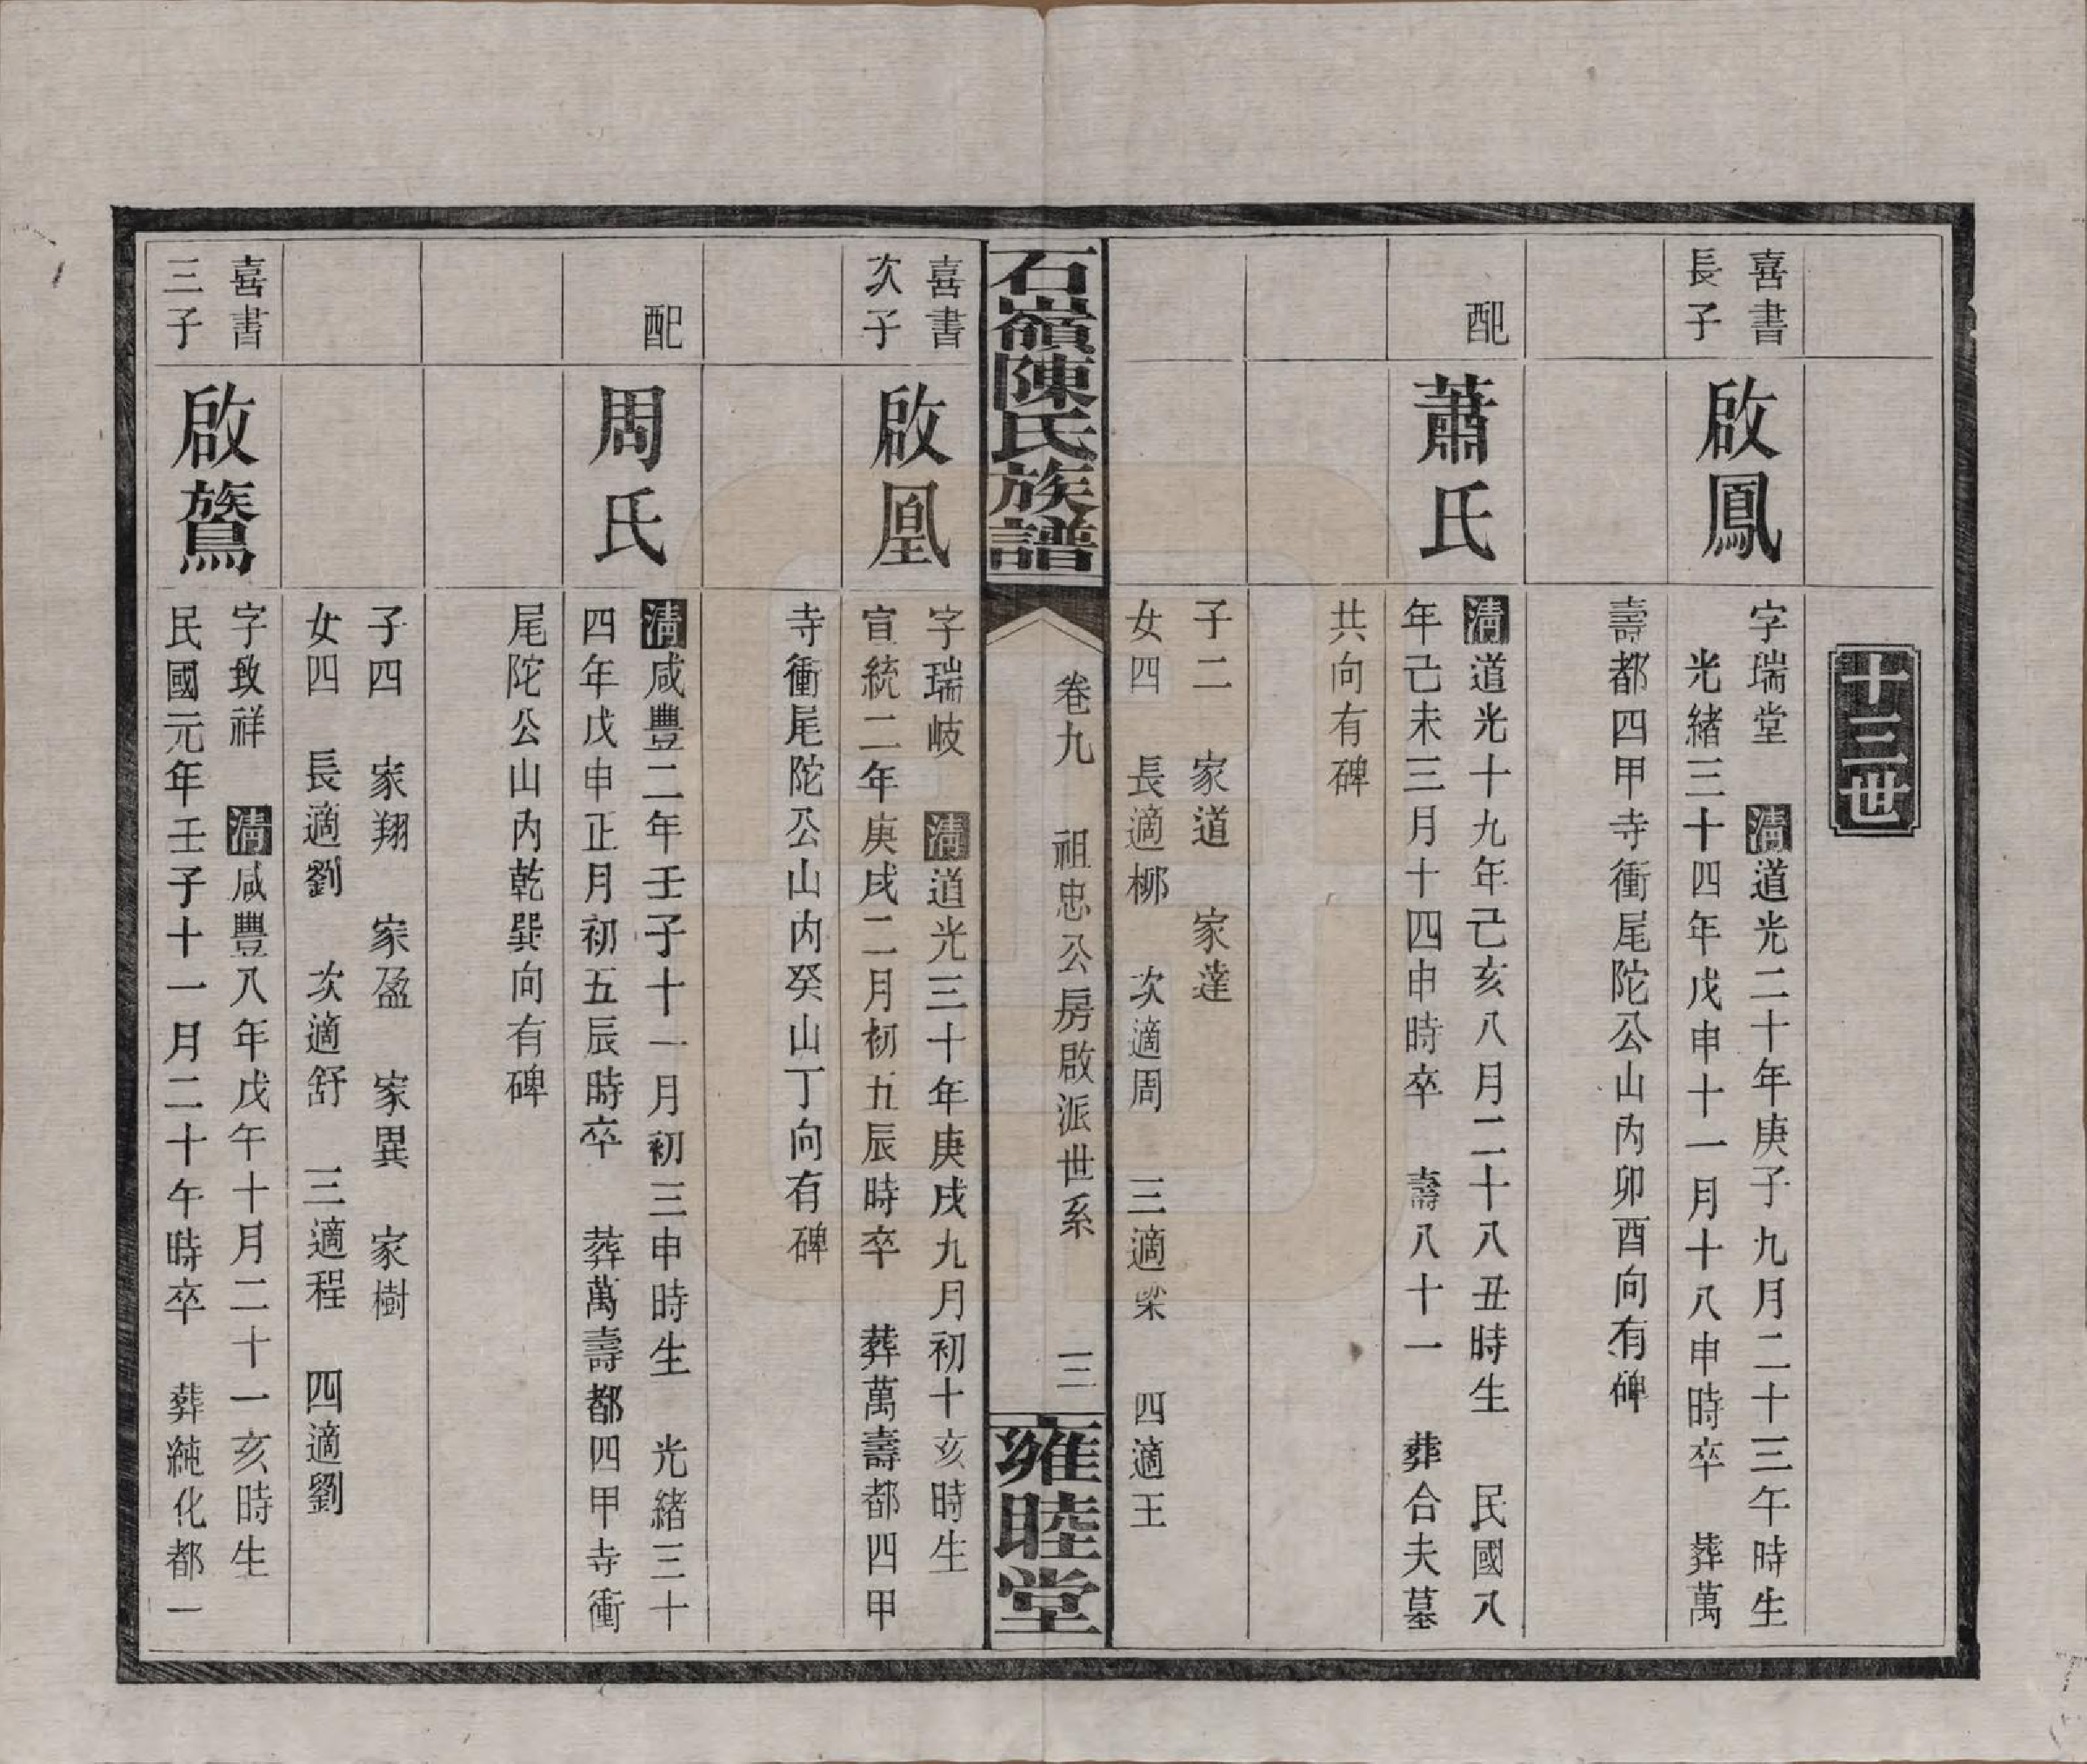 十三世
喜書
長子
啟鳳
字瑞堂　清道光二十年庚子九月二十三午時生
光緒三十四年戊申十一月十八申時卒　葬萬
壽都四甲寺衝尾陀公山內卯酉向有碑
配
蕭氏
清道光十九年己亥八月二十八丑時生　民國八
年己未三月十四申時卒　壽八十一　葬合夫墓
共向有碑
子二　家道　家達
女四　長適柳　次適周　三適梁　四適王
石嶺陳氏族譜
卷九　祖忠公房啟派世系　三
雍睦堂
喜書
次子
啟凰
字瑞岐　清道光三十年庚戌九月初十亥時生
宣統二年庚戌二月初五辰時卒　葬萬壽都四甲
寺衝尾陀公山內癸山丁向有碑
配
周氏
清咸豐二年壬子十一月初三申時生　光緒三十
四年戊申正月初五辰時卒　葬萬壽都四甲寺衝
尾陀公山內乾巽向有碑
子四　家翔　家盈　家異　家樹
女四　長適劉　次適舒　三適程　四適劉
喜書
三子
啟鷟
字致祥　清咸豐八年戊午十月二十一亥時生
民國元年壬子十一月二十午時卒　葬純化都一